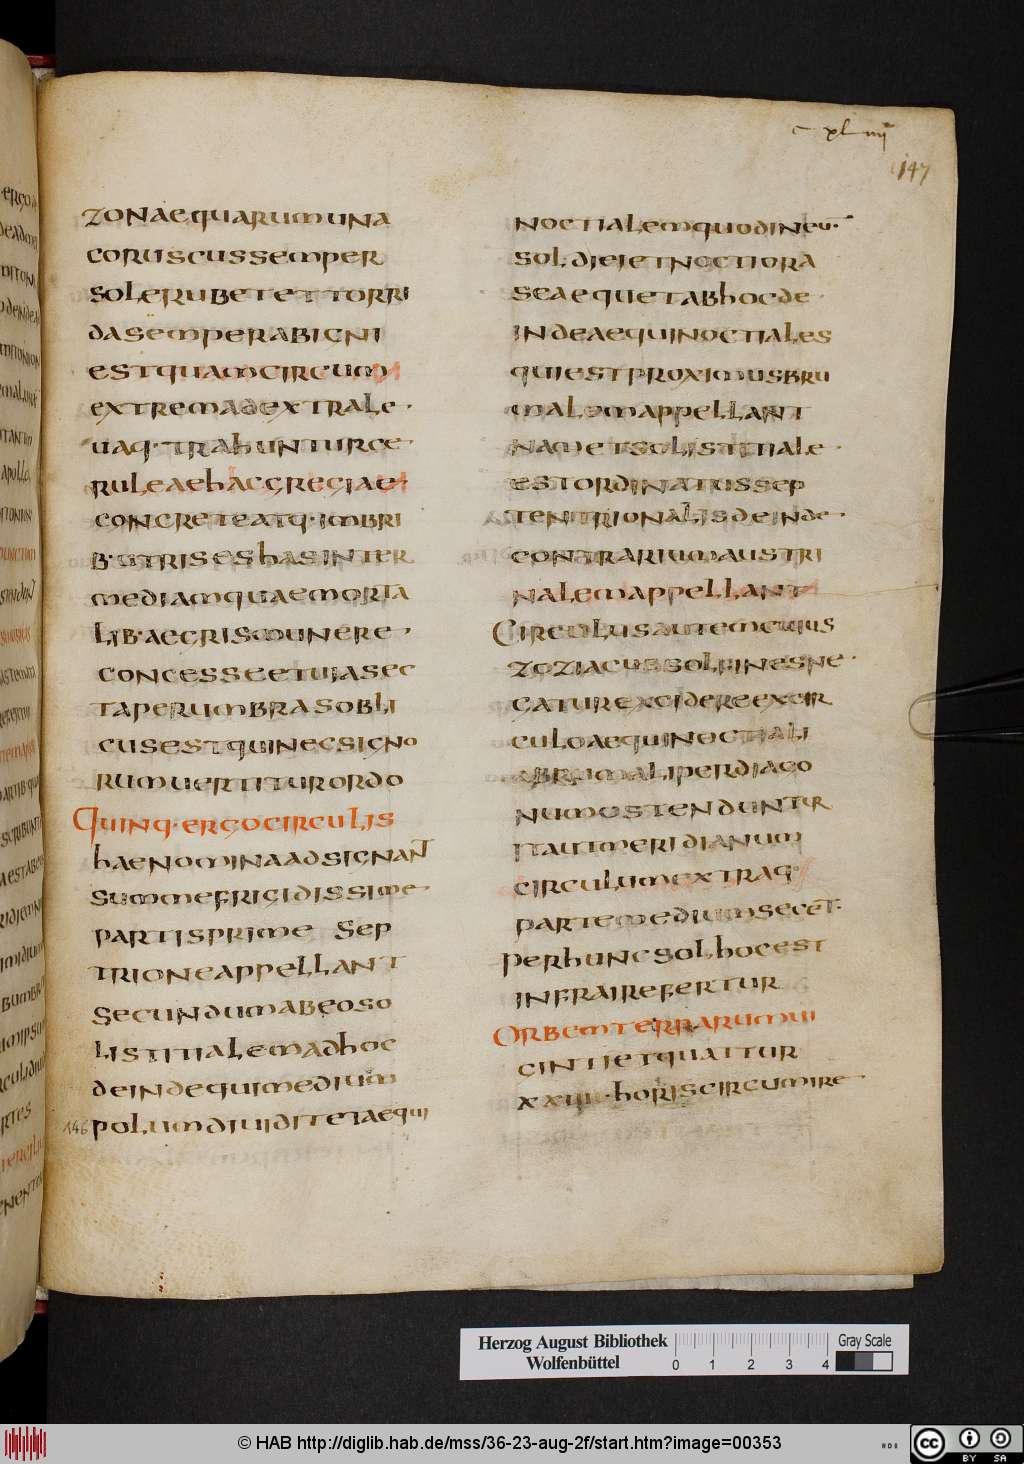 c xliiii
147
ZONAEQUARUMUNA
CORUSCUSSEMPER
SOLERUBETETTORRI
DASEMPERABIGNI
ESTQUAMCIRCUM
EXTREMADEXTRALE
UAQ·TRAHUNTURCE
RULEAEHACGREGIAE
CONCRETEATQ·IMBRI
B·UTRISESHASINTER
MEDIAMQUAEMORTA
LIB·AEGRISMUNERE
CONCESSEETUIASEC
TAPERUMBRASOBLI
CUSESTQUINECSIGNO
RUMUERTITURORDO
QUINQ·ERGOCIRCULIS
HAENOMINAADSIGNANT
SUMMEFRIGIDISSIME
PARTISPRIME SEP
TRIONEAPPELLANT
SECUNDUMABEOSO
LISTITIALEMADHOC
DEINDEQUIMEDIUM
146 POLUMDIUIDITETAEQUI
NOCTIALEMQUODINEU·
SOLDIEIETNOCTIORA
SEAEQUETABHOCDE
INDEAEQUINOCTIALES
QUIESTPROXIMUSBRU
MALEMAPPELLANT
NAMETSOLISTITIALE
ESTORDINATUSSEP
TENTRIONALISDEINDE
CONTRARIUMAUSTRI
NALEMAPPELLANT
CIRCULUSAUTEMCUIUS
ZOZIACUSSOLFINESNE
GATUREXCIDEREEXCIR
CULOAEQUINOCTIALI
ABRUMALIPERDIAGO
NUMOSTENDUNTUR
ITAUTMERIDIANUM
CIRCULUMEXTRAQ·
PARTEMEDIUMSECET·
PERHUNCSOLHOCEST
INFRAIREFERTUR
ORBEMTERRARUMUI
GINTIETQUATTUR
XXIIII·HORISCIRCUMIRE
Herzog August Bibliothek
Wolfenbüttel
0 1 2 3 4
Gray Scale
© HAB http://diglib.hab.de/mss/36-23-aug-2f/start.htm?image=00353
cc BY SA